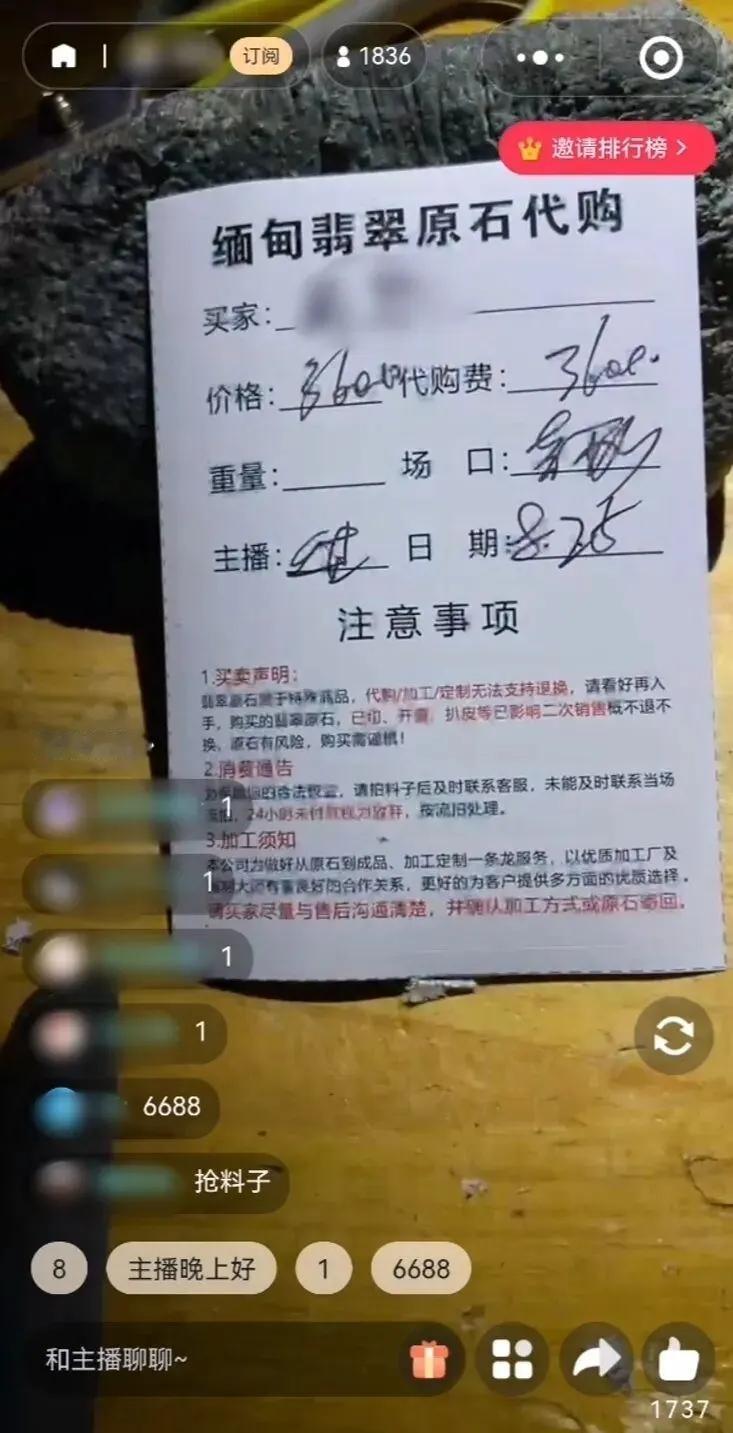 订阅
1836
邀请排行榜
缅甸翡翠原石代购
买家:
价格: 代购费:
重量: 场 口:
主播: 日 期: 8.25
注意事项
1.买卖声明:
翡翠原石属于特殊商品，代购/加工/定制无法支持退换，请看好再入
手，购买的翡翠原石，已切、开窗、扒皮等已影响二次销售概不退不
换，原石有风险，购买需谨慎！
2.消费通告
请拍料子后及时联系客服，未能及时联系当场
24小时未付款视为放弃，按流拍处理。
3.加工须知
本公司力做好从原石到成品、加工定制一条龙服务，以优质加工厂及
有着良好的合作关系，更好的为客户提供多方面的优质选择。
请买家尽量与售后沟通清楚，并确认加工方式或原石寄回。
1
1
1
1
6688
抢料子
8
主播晚上好
1
6688
和主播聊聊~
1737